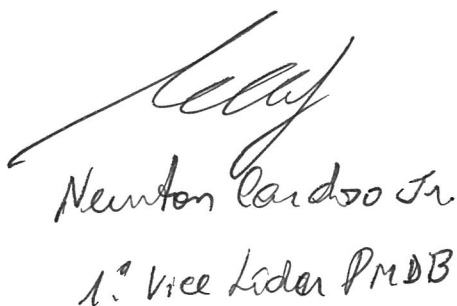 Newton Cardoso Jr.
1º Vice Líder PMDB